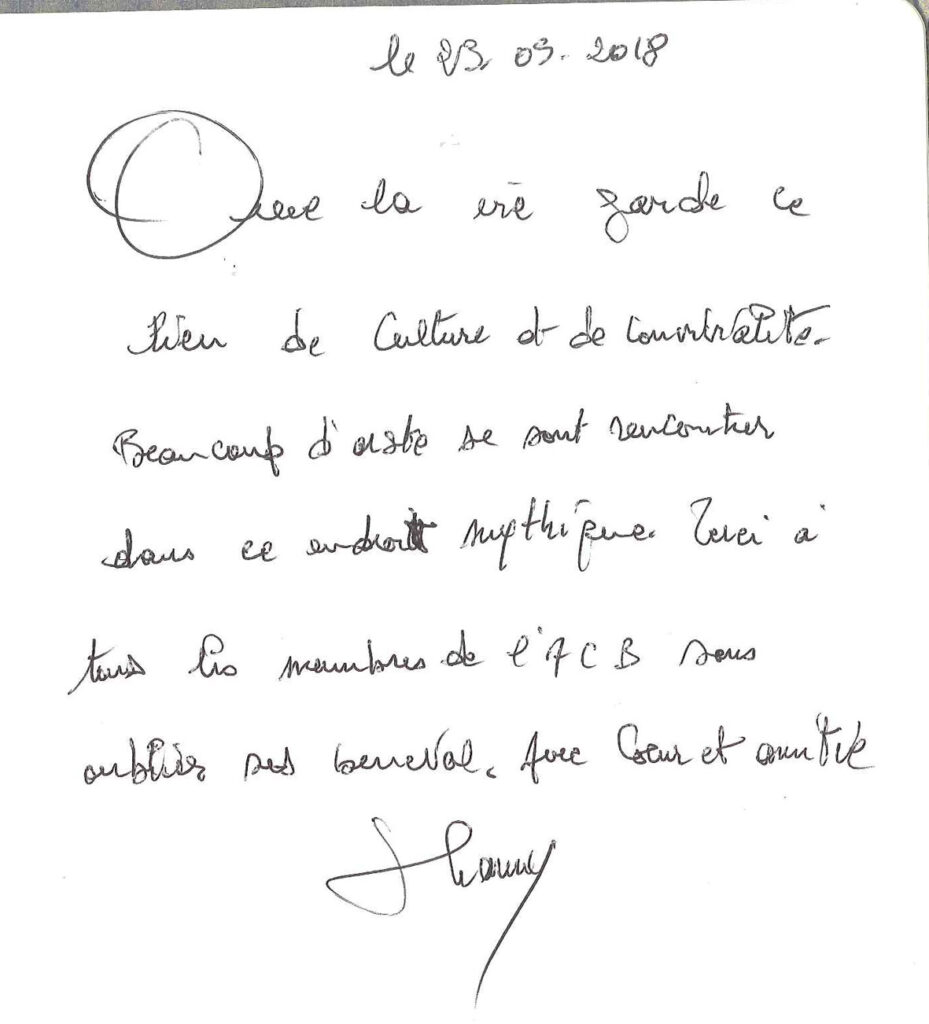 le 23. 03. 2018
Que la vie garde ce
lieu de Culture et de Convivialité.
Beaucoup d'artiste se sont rencontrer
dans ce endroit mythique. Merci à
tous les membres de l'ACB sans
oublier ses beneval. Avec Cœur et amitié